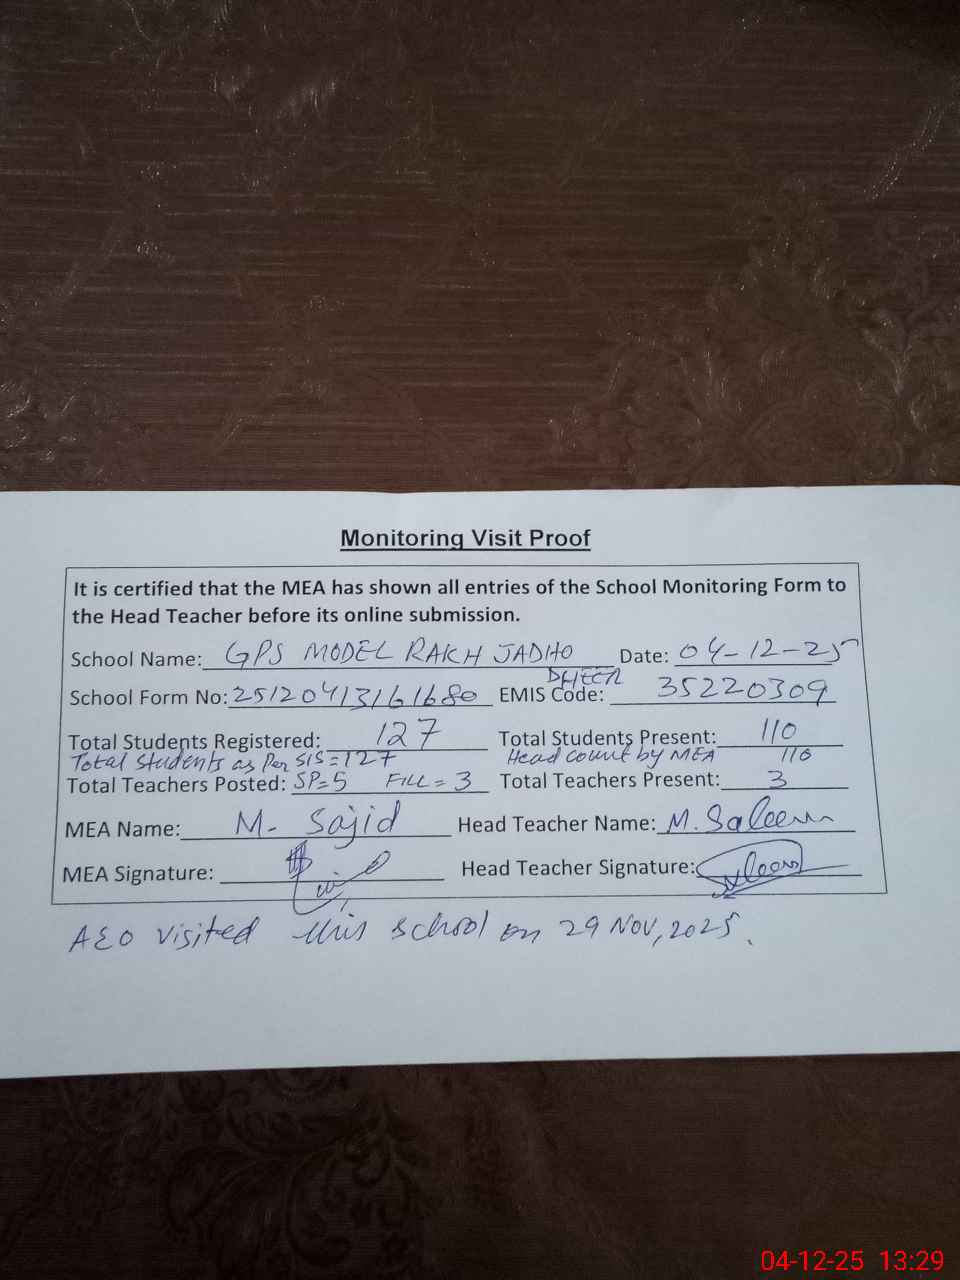 Monitoring Visit Proof
It is certified that the MEA has shown all entries of the School Monitoring Form to
the Head Teacher before its online submission.
School Name: GPS MODEL RAKH JADHO DHEER Date: 04-12-25
School Form No: 25120413161680 EMIS Code: 35220309
Total Students Registered: 127 Total Students Present: 110
Total Students as Per SIS=127 Head count by MEA 110
Total Teachers Posted: SP=5 FILL=3 Total Teachers Present: 3
MEA Name: M. Sajid Head Teacher Name: M. Saleem
MEA Signature: Head Teacher Signature:
AEO visited this school on 29 Nov, 2025.
04-12-25 13:29